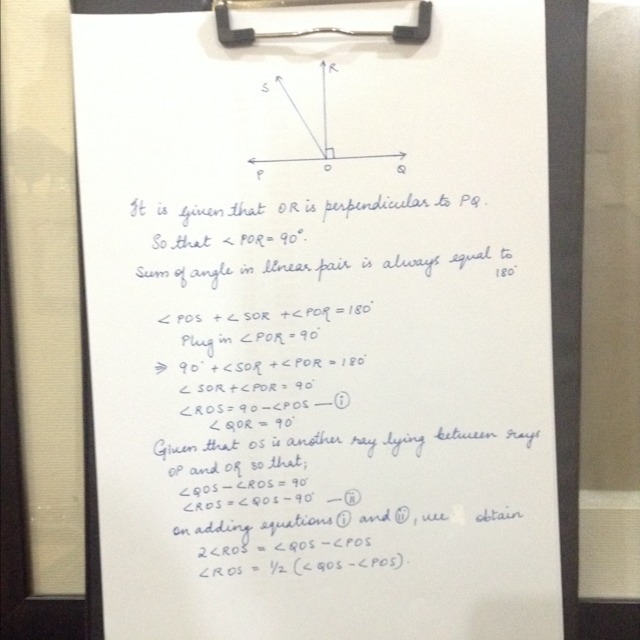 S R
P O Q
It is given that OR is perpendicular to PQ.
So that < POR = 90°.
Sum of angle in linear pair is always equal to
180°
< POS + < SOR + < POR = 180°
Plug in < POR = 90°
⇒ 90° + < SOR + < POR = 180°
< SOR + < POR = 90°
< ROS = 90 - < POS — (i)
< QOR = 90°
Given that OS is another ray lying between rays
OP and OR so that;
< QOS - < ROS = 90°
< ROS = < QOS - 90° — (ii)
on adding equations (i) and (ii), we obtain
2 < ROS = < QOS - < POS
< ROS = 1/2 (< QOS - < POS).